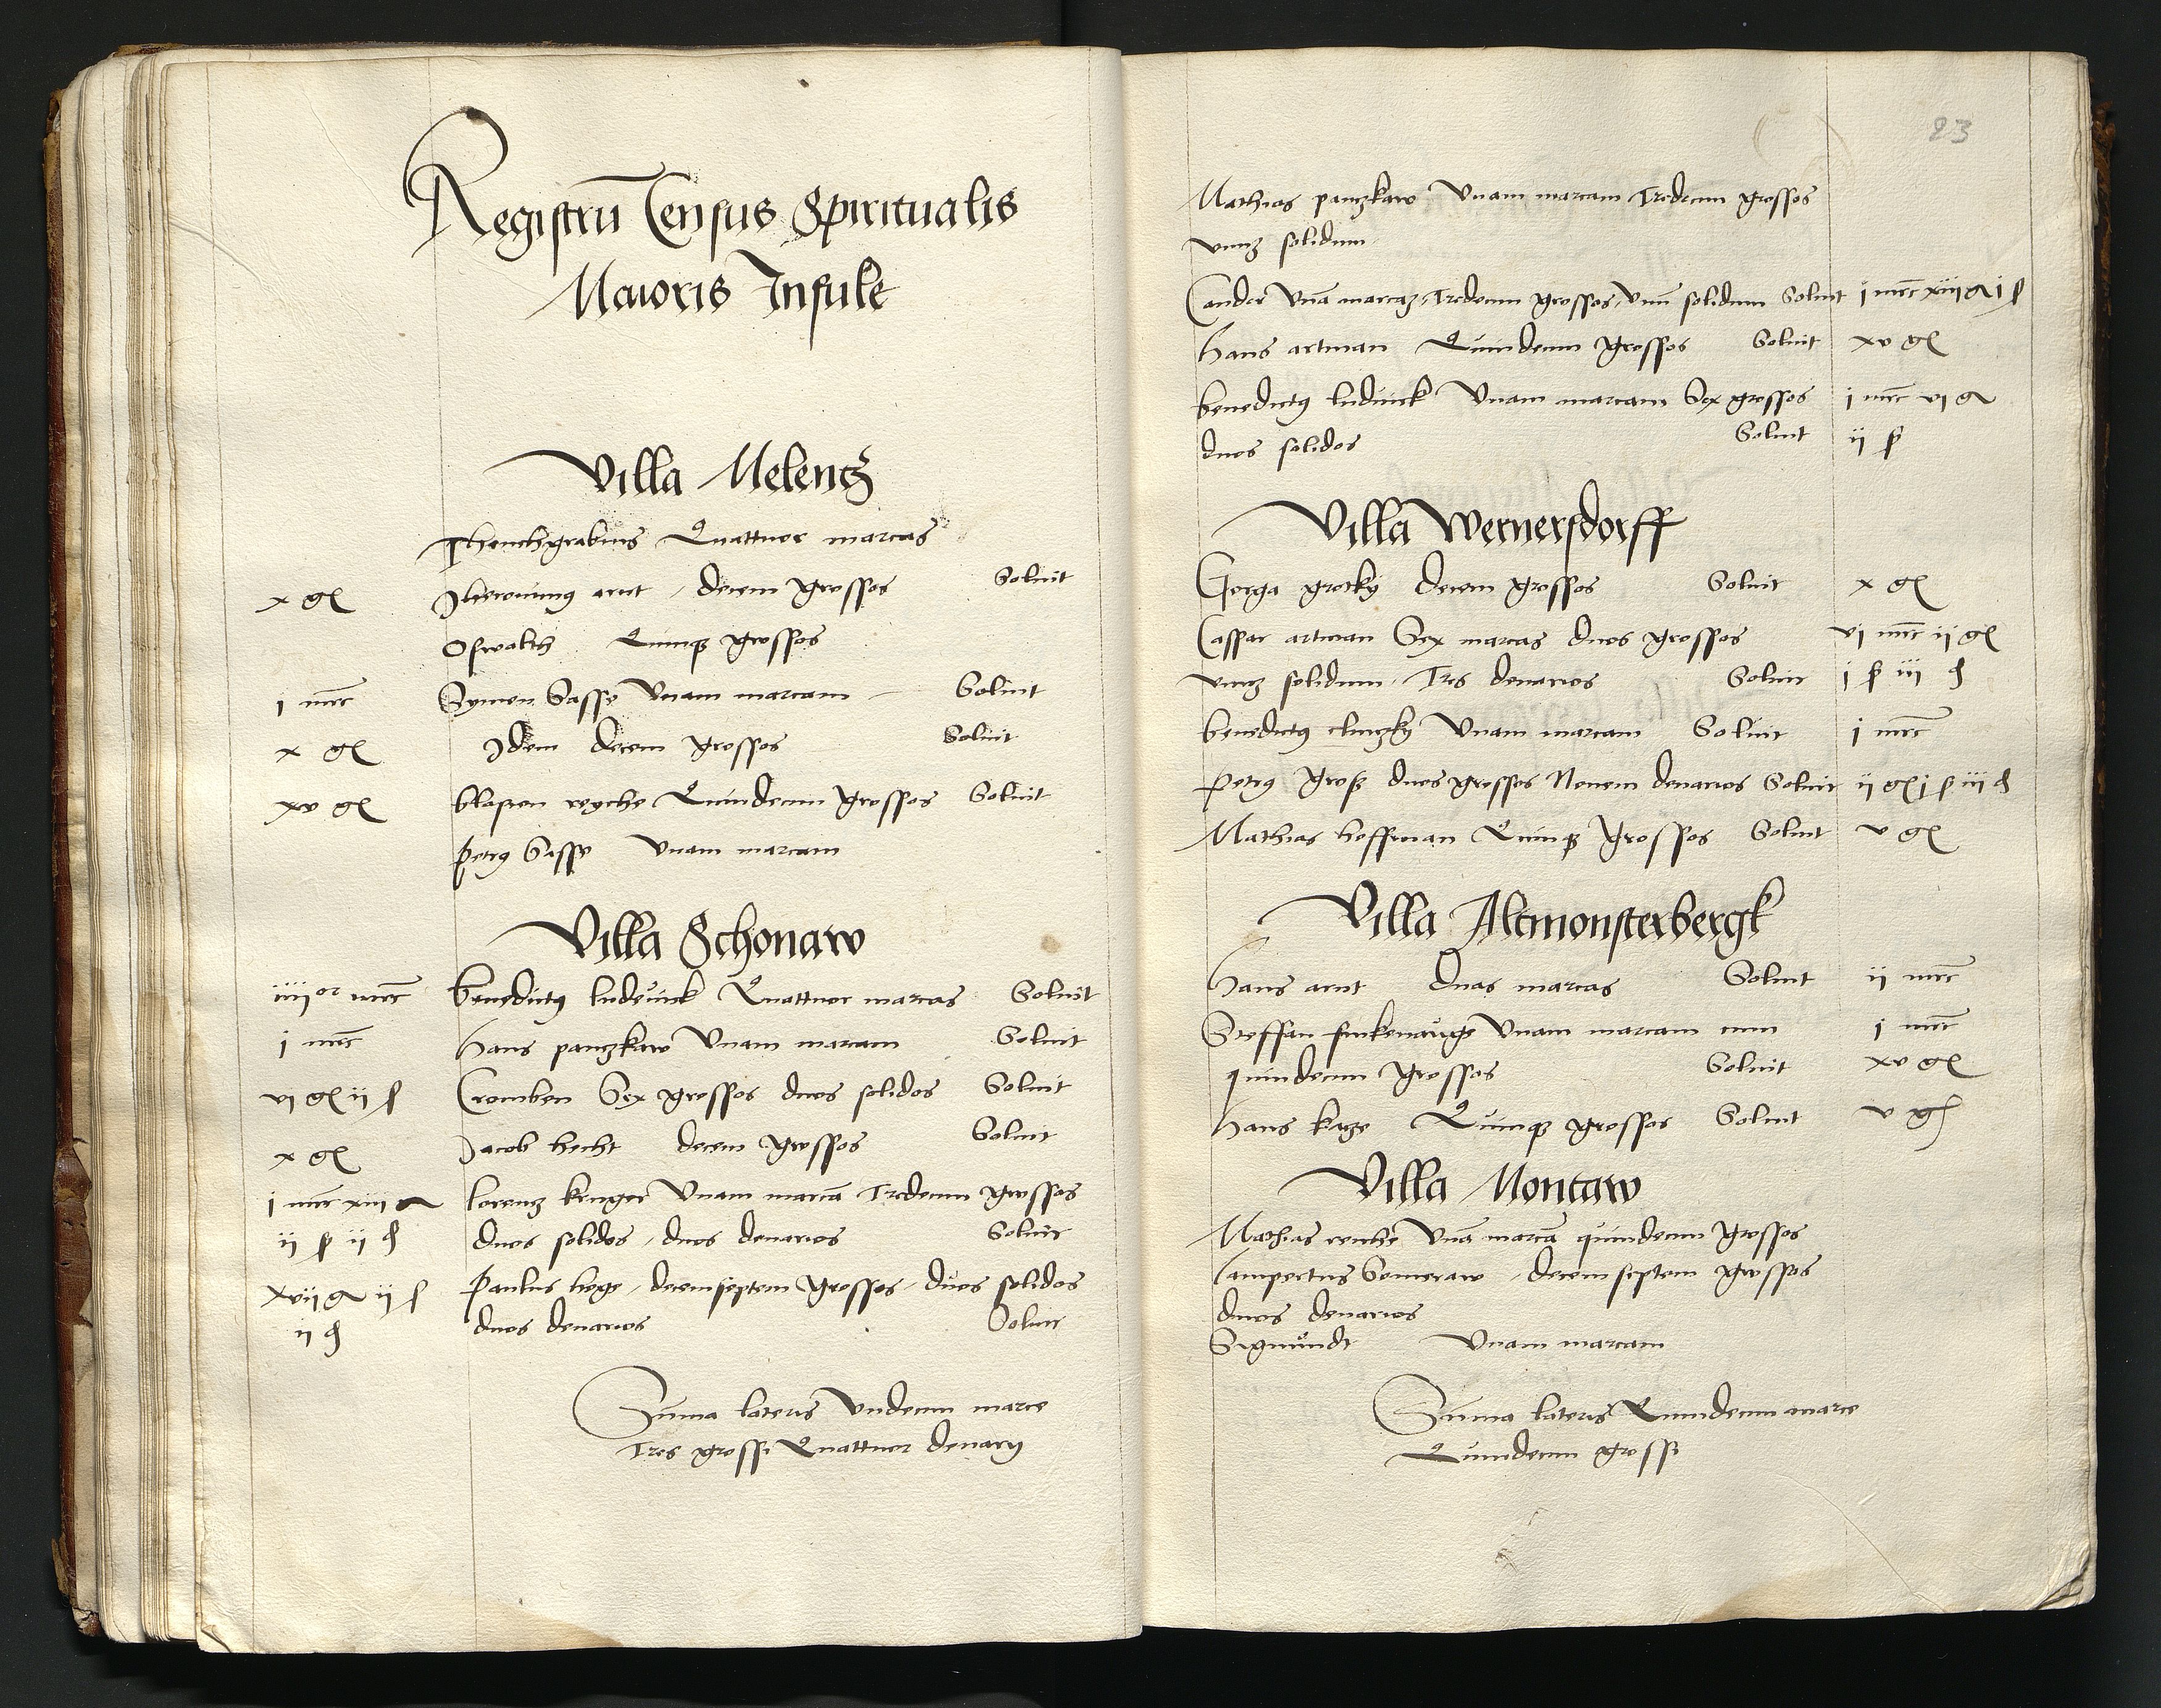 Registrū Census Spiritualis
Maioris Insule
Villa Melentz
Quattuor marcas
x gſ Iheronimꝯ arnt / decem grossos Soluit
Oswalth Quinqꝫ grossos
i mrc Symon Sasse Vnam marcam Soluit
x gſ Idem decem grossos Soluit
xv gſ blasien reyche Quindecim grossos Soluit
Petrꝯ Sasse vnam marcam
Villa Schonaw
iiiior mrc benedictꝯ ludewick Quattuor marcas Soluit
i mrc hans panczkaw Vnam marcam Soluit
vi gſ ii ſ Cromben Sex grossos duos solidos Soluit
x gſ Jacob hecht decem grossos Soluit
i mrc xiii g lorentz kruger Vnam marcā Tredecim grossos
ii ſ ii d duos solidos / duos denarios Soluit
xvii g ii ſ Paulus hege / decemseptem grossos / duos solidos
ii d duos denarios Soluit
Suma lateris Vndecim marce
Tres grossi Quattuor denarij
23
Mathias panczkaw Vnam marcam Tredecim grossos
vnuꝫ solidum
Cander Vnā marcaꝫ Tredecim grossos / vnū solidum Soluit i mrc xiii g i ſ
hans artman Quindecim grossos Soluit xv gſ
benedictꝯ ludwick Vnam marcam Sex grossos i mrc vi g
duos solidos Soluit ii ſ
Villa Wernersdorff
Gorga grotky decem grossos Soluit x gſ
Caspar artman Sex marcas duos grossos vi mrc ii gſ
vnuꝫ solidum Tres denarios Soluit i ſ iii d
benedictꝯ clinczky Vnam marcam Soluit i mrc
Petrꝯ groß duos grossos Nouem denarios Soluit ii gſ i ſ iii d
Mathias hoffman Quinqꝫ grossos Soluit v gſ
Villa Altmonsterbergk
hans arnt duas marcas Soluit ii mrc
Steffan finkenauge Vnam marcam cum i mrc
quindecim grossos Soluit xv gſ
hans katze Quinqꝫ grossos Soluit v gſ
Villa Montaw
Mathias Vnā marcā quindecim grossos
lampertus Someraw / decemseptem grossos
duos denarios
Sigmundt Vnam marcam
Suma lateris Quindecim marce
Quindecim grossi